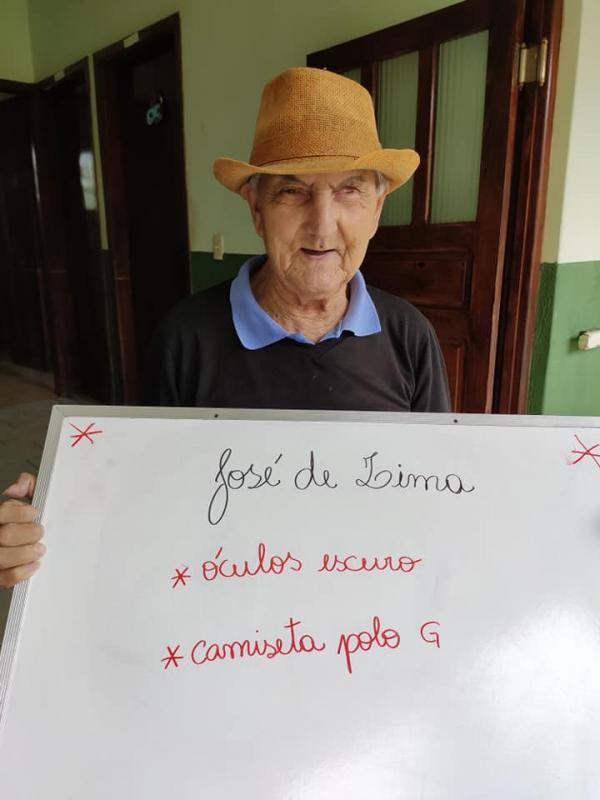 José de Lima
* óculos escuro
* camiseta polo G